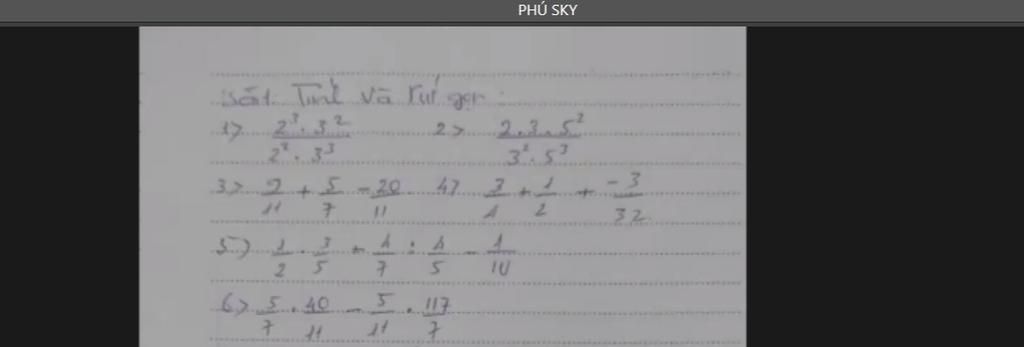 PHÚ SKY
Bài 1. Tính và rút gọn:
1> (2³ . 3²)/(2² . 3³) 2> (2 . 3 . 5²)/(3² . 5³)
3> 2/11 + 5/7 - 20/11 4> 3/4 + 1/2 + -3/32
5) 1/2 . 3/5 + 4/7 : 4/5 - 1/10
6> 5/7 . 40/11 - 5/11 . 117/7